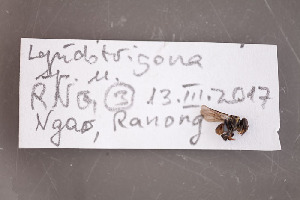 Lepidotrigona
sp. n.
RNG ③ 13.III.2017
Ngao, Ranong